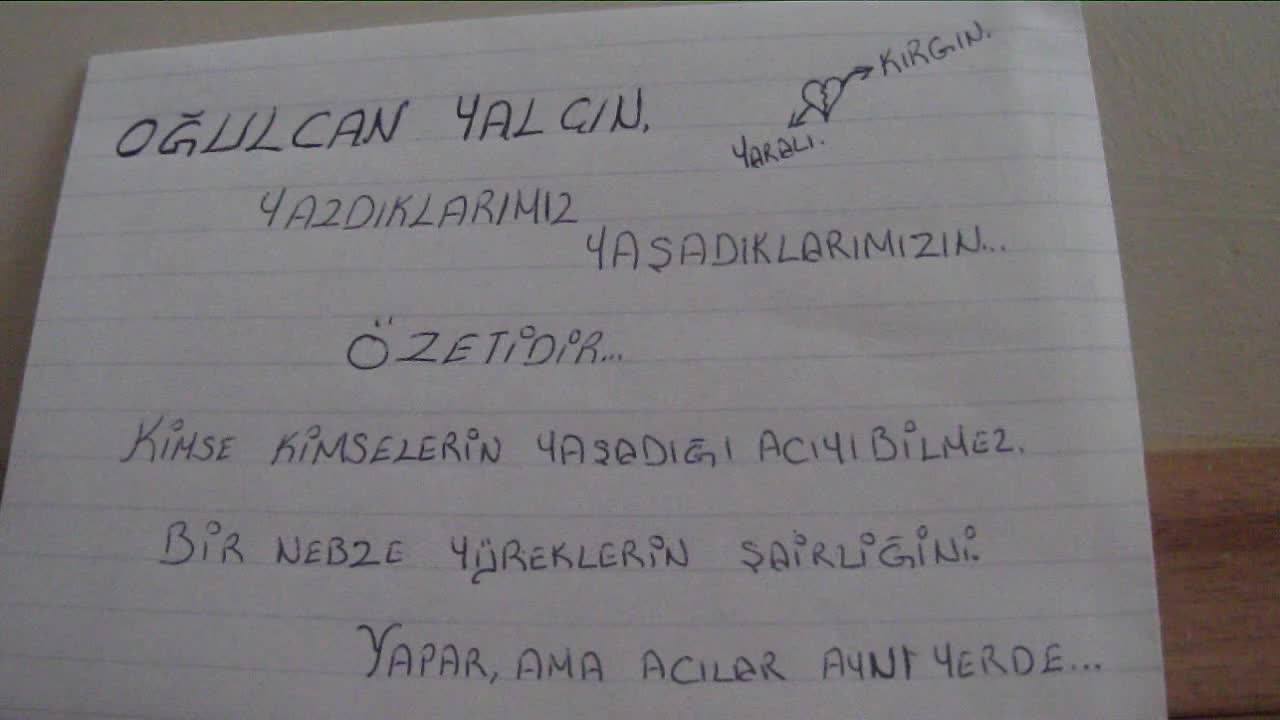 OĞULCAN YALÇIN.
KIRGIN.
YARALI.
YAZDIKLARIMIZ
YAŞADIKLARIMIZIN...
ÖZETİDİR...
KİMSE KİMSELERİN YAŞADIĞI ACIYI BİLMEZ.
BİR NEBZE YÜREKLERİN ŞAİRLİĞİNİ.
YAPAR, AMA ACILAR AYNI YERDE...